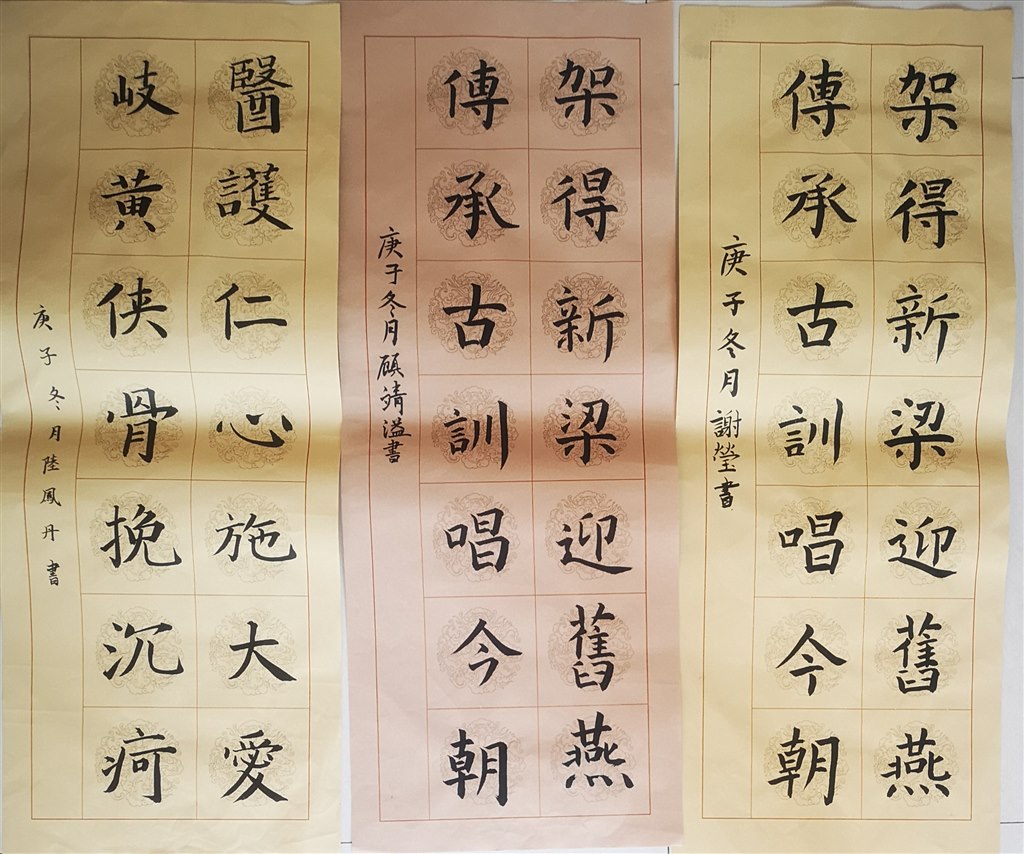 醫護仁心施大愛
岐黄侠骨挽沉疴
庚子冬月陸鳳丹書
架得新梁迎舊燕
傳承古訓唱今朝
庚子冬月顧靖溢書
架得新梁迎舊燕
傳承古訓唱今朝
庚子冬月謝瑩書